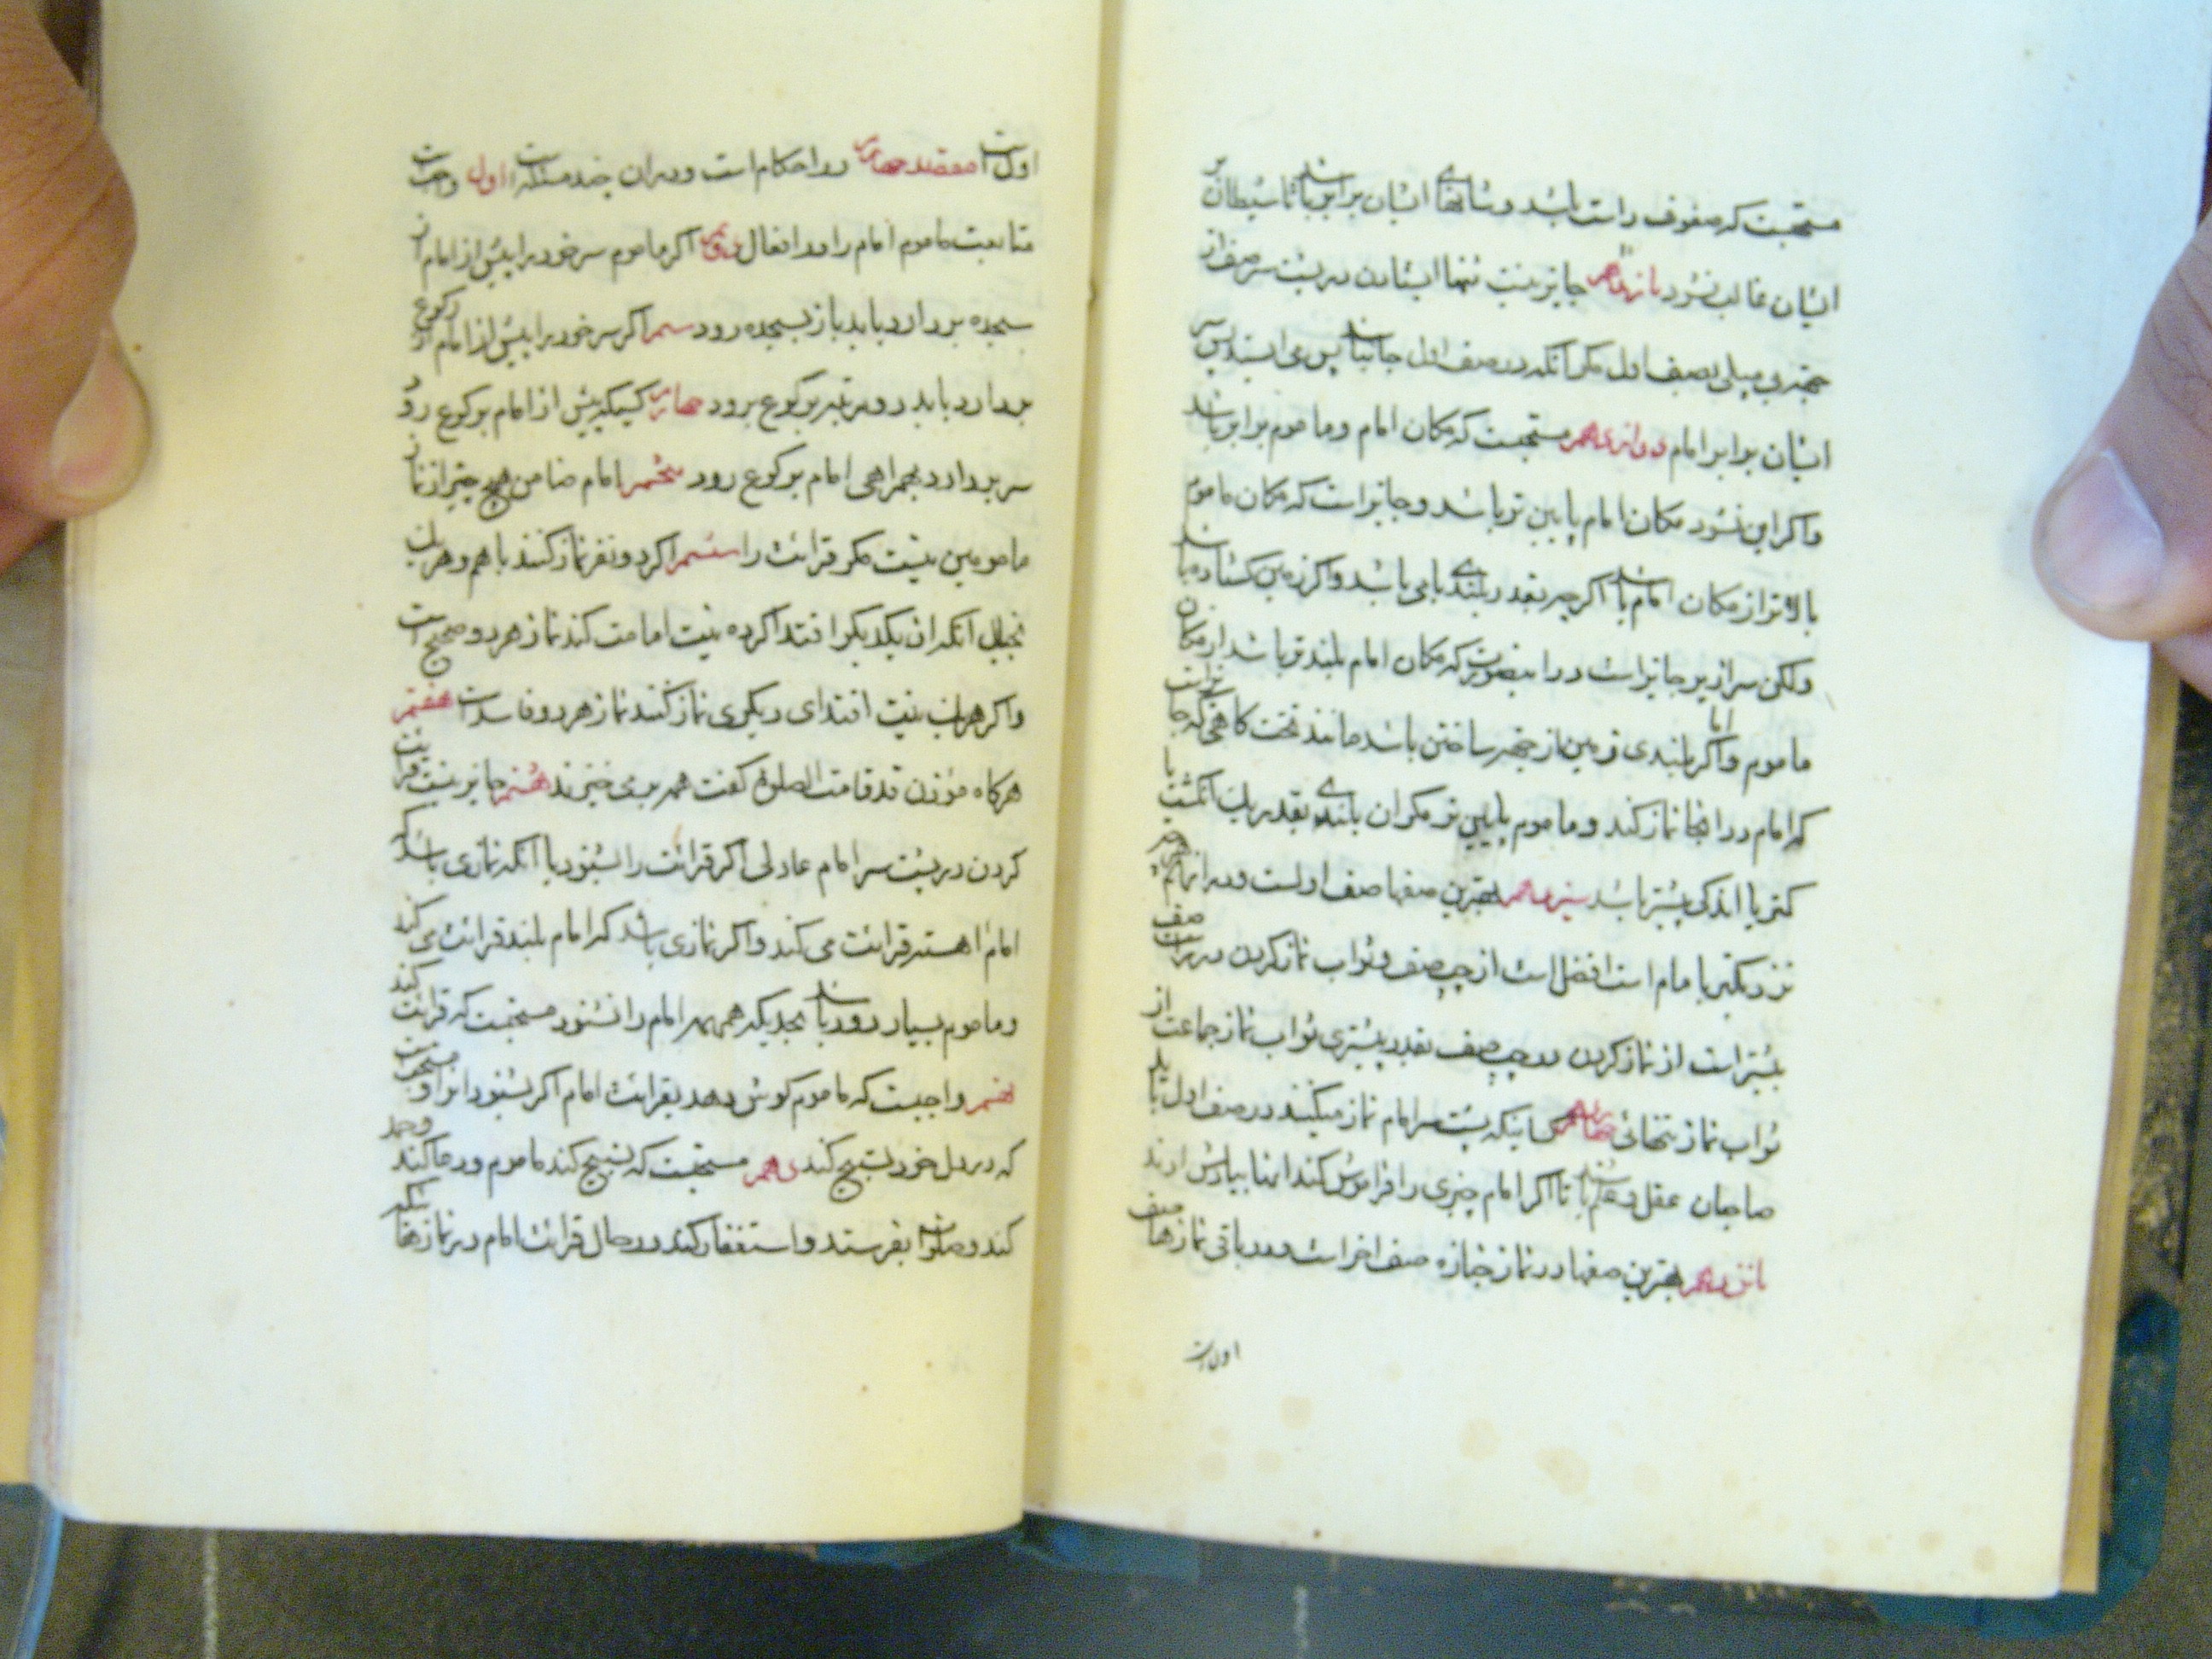 مستحبست که صفوف راست باشد و شانهای ایشان برابر باشد تا شیطان بر
ایشان غالب نشود یازدهم جایز نیست تنها ایستادن در پشت سر صف از
جهة میلی بصف اول مکر آنکه در صف اول جا نباشد پس می ایستد پس سر
ایشان برابر امام دوازدهم مستحبست که مکان امام و ماموم برابر باشد
واکر این نشود مکان امام پایین تر باشد و جایز است که مکان ماموم
بالاتر از مکان امام باشد اکرچه بقدر بلندی بامی باشد واکر زمین کشاده باشد
ولکن سرازیر جایز است در اینصورت که مکان امام بلندتر باشد از مکان
ماموم و اما اکر بلندی زمین از جهة ساختن باشد مانند تخت کاهی که جایز نیست
که امام در انجا نماز کند و ماموم پایین تر مکر ان بلندی بقدر یک انکشت یا
کمتر یا اندکی بیشتر باشد سیزدهم بهترین صفها صف اولست و در ان هم هر چه
نزدیکتر بامام است افضل است از چپ صف و ثواب نماز کردن در راست صف
بیشتر است از نماز کردن در چپ صف بقدر بیشتری ثواب نماز جماعت از
ثواب نماز تنهائی چهاردهم کسانیکه پشت سر امام نماز میکنند در صف اول باید
صاحبان عقل و علم باشند تا اکر امام چیزی را فراموش کند اینها بیادش ارند
پانزدهم بهترین صفها در نماز جنازه صف اخر است و در باقی نمازها صف
اول است
اول است مقصد چهارم در احکام است و در ان چند مسئله است اول واجبست
متابعت ماموم امام را در افعال دویم اکر ماموم سر خود را پیش از امام از
سجده بردارد باید باز بسجده رود سیم اکر سر خود را پیش از امام از رکوع
بردارد باید دو مرتبه برکوع برود چهارم کسیکه پیش از امام برکوع رود
سر بردارد بهمراهی امام برکوع رود پنجم امام ضامن هیچ چیز از نماز
مامومین نیست مکر قرائت را ششم اکر دو نفر نماز کنند با هم و هر یک
بخیال آنکه ان یکدیکر اقتدا کرده نیت امامت کند نماز هر دو صحیح است
واکر هر یک نیت اقتدای دیکری نماز کنند نماز هر دو فاسد است هفتم
هرکاه موذن قد قامت الصلوة کفت همه برمی خیزند هشتم جایز نیست قرائت
کردن در پشت سر امام عادلی اکر قرائت را بشنود یا آنکه نمازی باشد که
امام اهسته قرائت می کند واکر نمازی باشد که امام بلند قرائت می کند
و ماموم بسیار دور باشد بحدیکه همهمه امام را نشنود مستحبست که قرائت کند
نهم واجبست که ماموم کوش دهد بقرائت امام اکر بشنود انرا و مستحبست
که در دل خود تسبیح کند دهم مستحبست که تسبیح کند ماموم و دعا کند و حمد
کند و صلوات بفرستد و استغفار کند در حال قرائت امام در نمازهائیکه